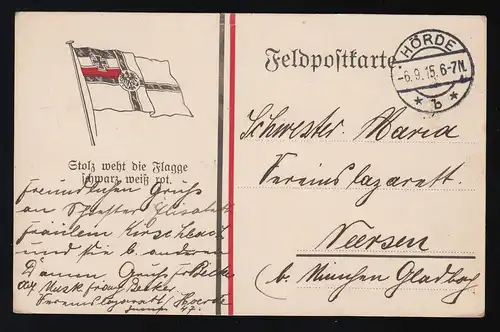 Feldpostkarte
HÖRDE
-6.9.15.6-7N.
* b *
Stolz weht die Flagge
schwarz weiß rot.
Schwester Maria
Vereinslazarett
Veersen
(b. München Gladbg.
freundlichen Gruß
an Schwester Elisabeth
Fräulein
und die b. anderen
Damen. Gruß fr Becker
Musk Franz Becker.
Vereinslazarett Hoerde
47.